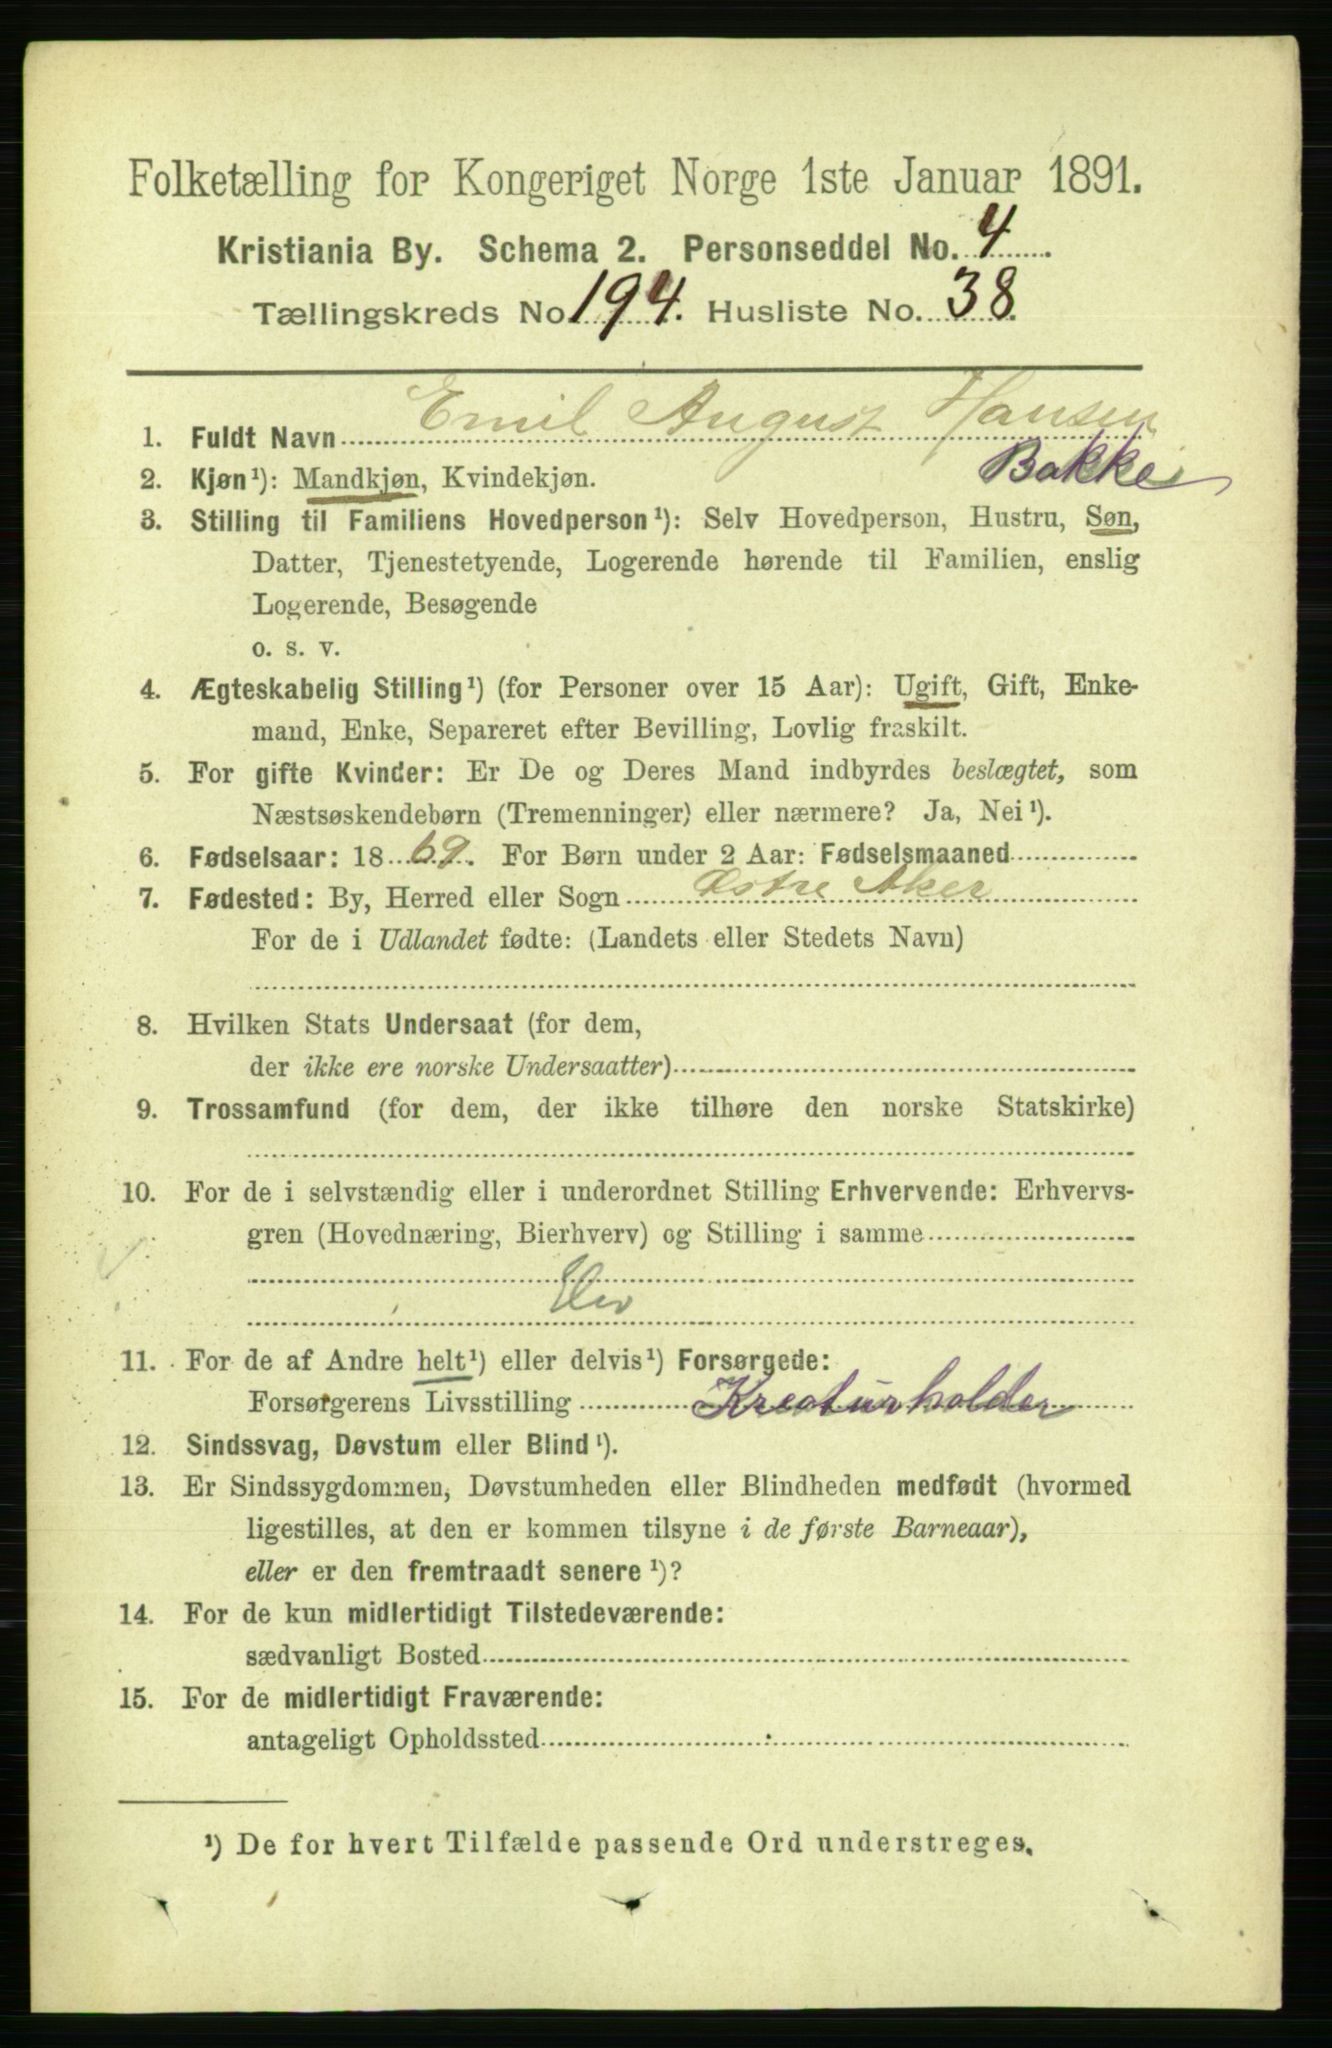 Folketælling for Kongeriget Norge 1ste Januar 1891.
Kristiania By. Schema 2. Personseddel No. 4
Tællingskreds No. 194. Husliste No. 38.
1. Fuldt Navn Emil August Hansen
Bakke
2. Kjøn¹): Mandkjøn, Kvindekjøn.
3. Stilling til Familiens Hovedperson¹): Selv Hovedperson, Hustru, Søn,
Datter, Tjenestetyende, Logerende hørende til Familien, enslig
Logerende, Besøgende
o. s. v.
4. Ægteskabelig Stilling¹) (for Personer over 15 Aar): Ugift, Gift, Enke-
mand, Enke, Separeret efter Bevilling, Lovlig fraskilt.
5. For gifte Kvinder: Er De og Deres Mand indbyrdes beslægtet, som
Næstsøskendebørn (Tremenninger) eller nærmere? Ja, Nei¹).
6. Fødselsaar: 1869. For Børn under 2 Aar: Fødselsmaaned
7. Fødested: By, Herred eller Sogn Østre Aker
For de i Udlandet fødte: (Landets eller Stedets Navn)
8. Hvilken Stats Undersaat (for dem,
der ikke ere norske Undersaatter)
9. Trossamfund (for dem, der ikke tilhøre den norske Statskirke)
10. For de i selvstændig eller i underordnet Stilling Erhvervende: Erhvervs-
gren (Hovednæring, Bierhverv) og Stilling i samme
Elev
11. For de af Andre helt¹) eller delvis¹) Forsørgede:
Forsørgerens Livsstilling Kreaturholder
12. Sindssvag, Døvstum eller Blind¹).
13. Er Sindssygdommen, Døvstumheden eller Blindheden medfødt (hvormed
ligestilles, at den er kommen tilsyne i de første Barneaar),
eller er den fremtraadt senere¹)?
14. For de kun midlertidigt Tilstedeværende:
sædvanligt Bosted
15. For de midlertidigt Fraværende:
antageligt Opholdssted
¹) De for hvert Tilfælde passende Ord understreges.